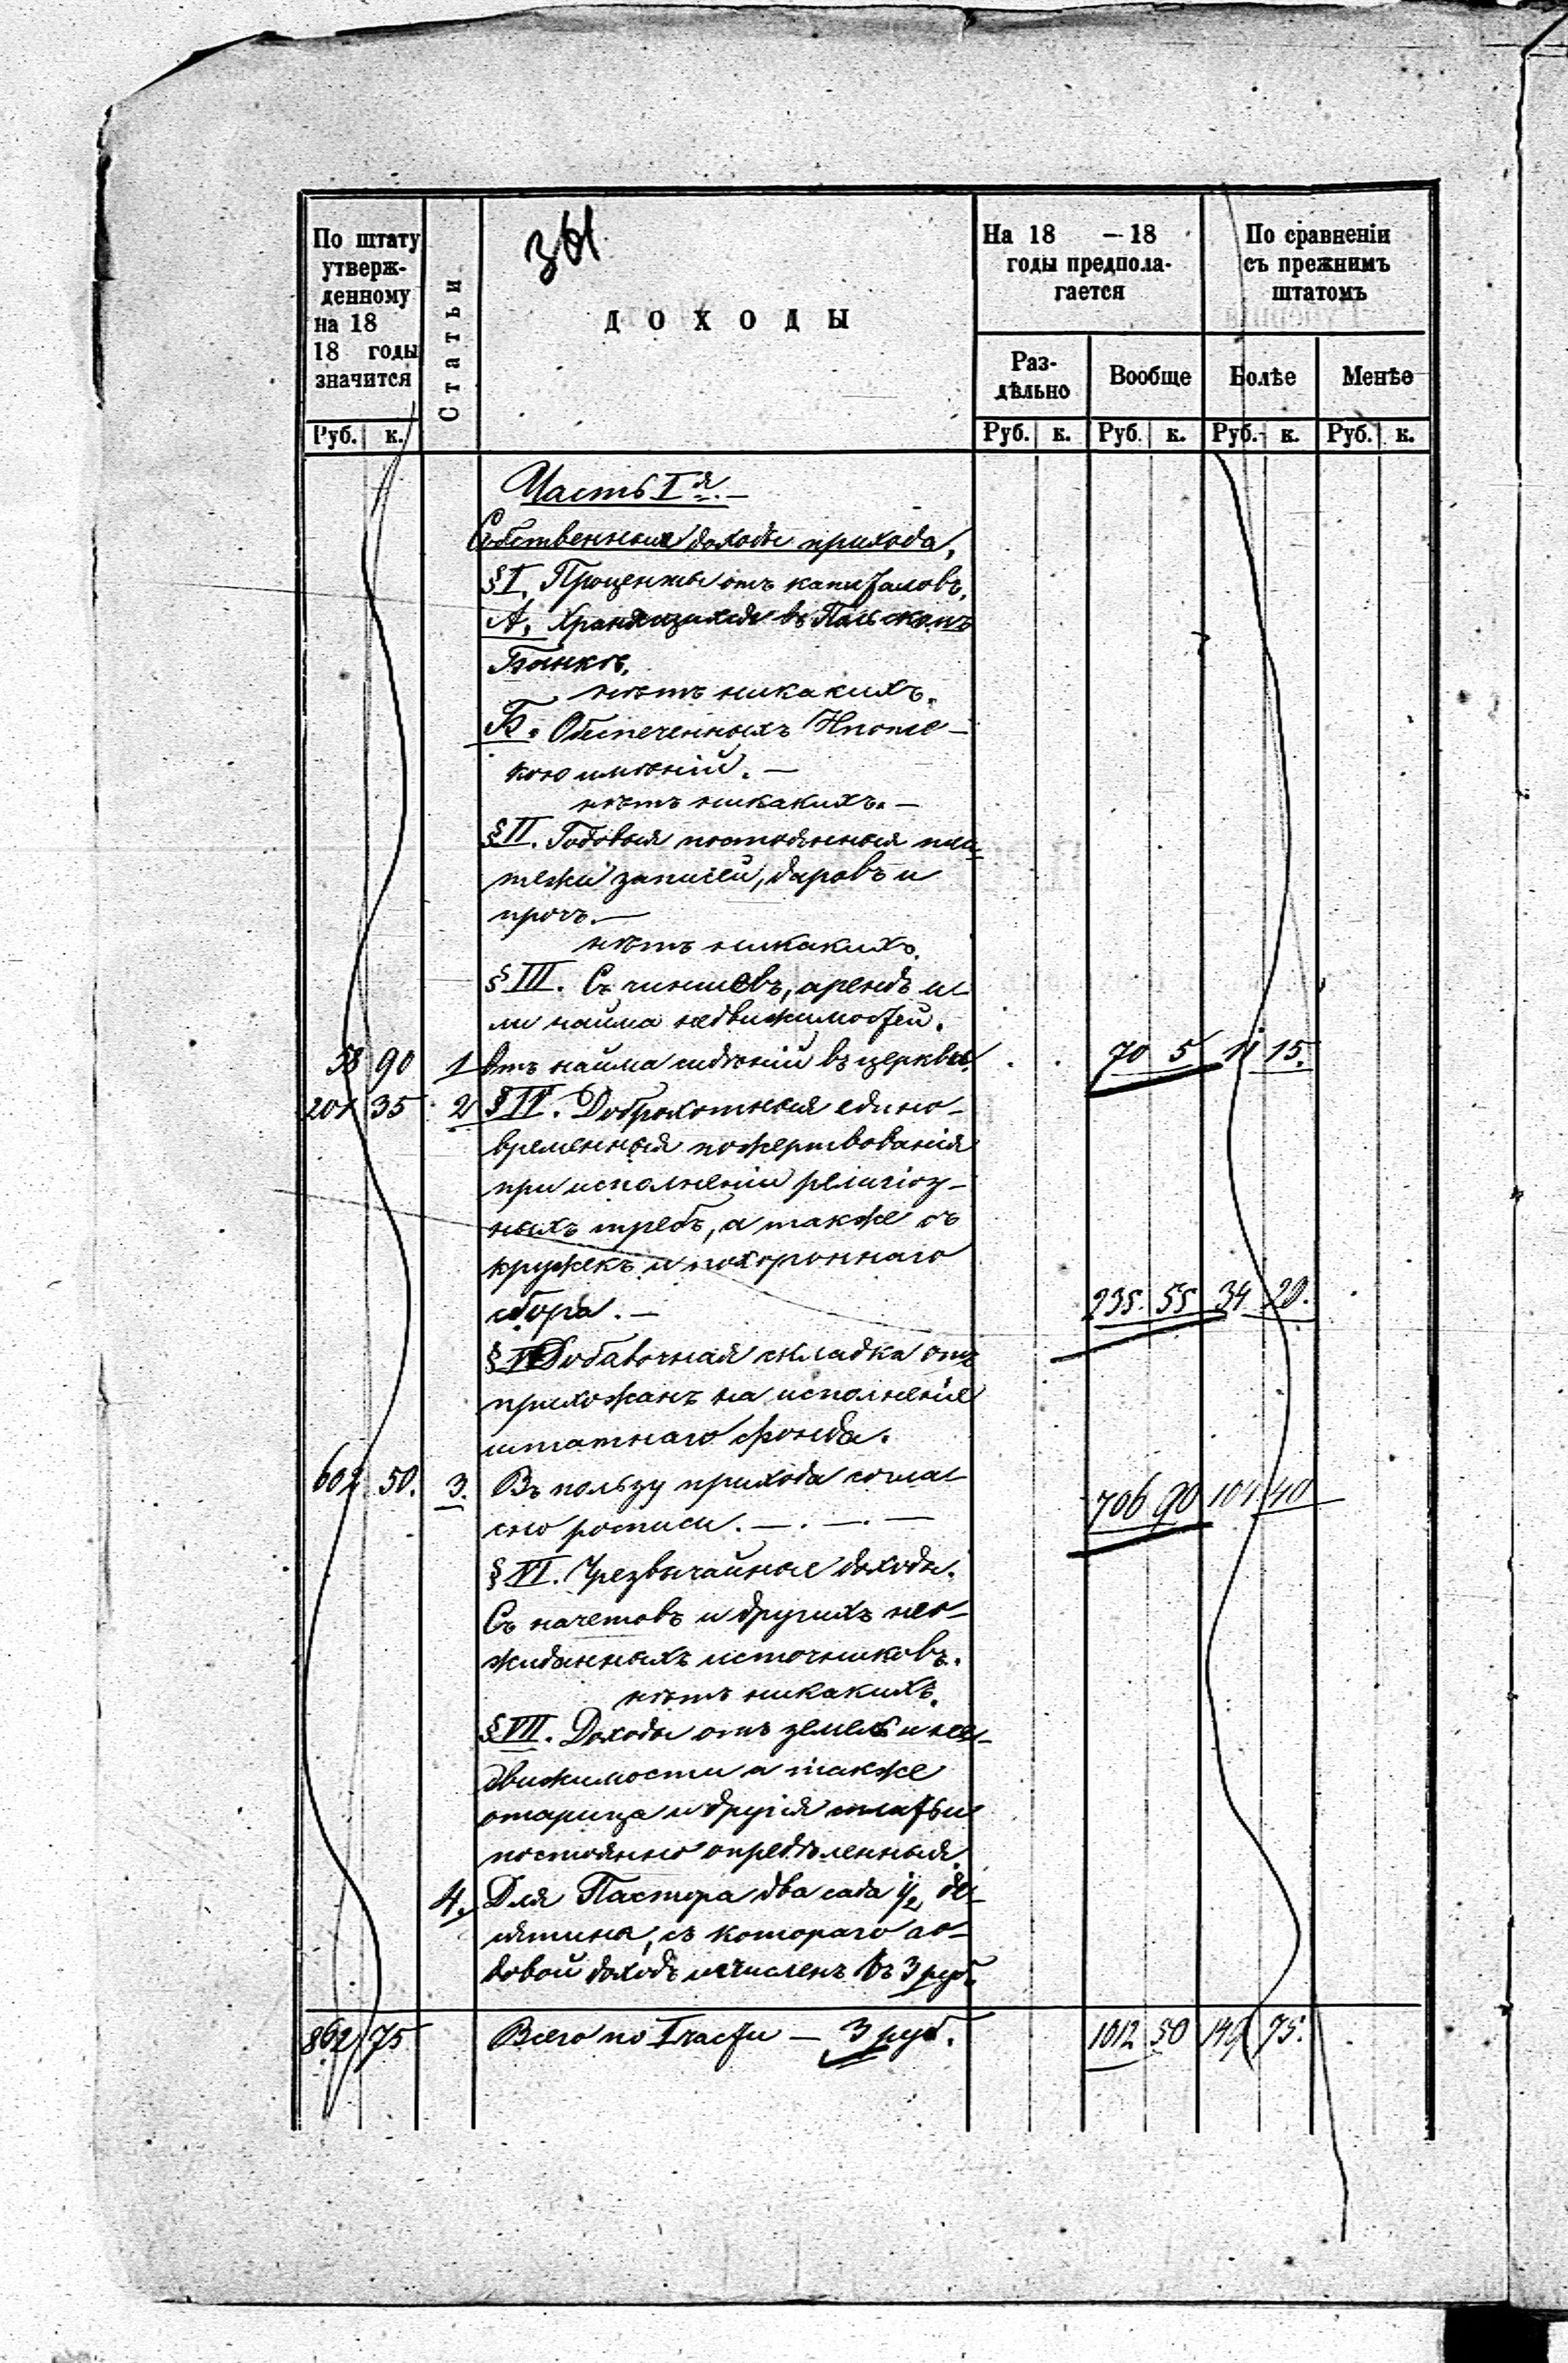 По штату
утверж-
денному
на 18
18 годы
значится
Руб. к.
Статьи
ДОХОДЫ
На 18 — 18
годы предпола-
гается
Раз-
дѣльно
Вообще
Руб. к. Руб. к.
По сравненіи
съ прежнимъ
штатомъ
Болѣе Менѣе
Руб. к. Руб. к.
Часть I я. —
Собственные доходы прихода.
§ I. Проценты отъ капиталовъ.
А. Хранящихся въ Польскомъ
Банкѣ.
нѣтъ никакихъ.
Б. Обеспеченныхъ Ипоте-
кою имѣній. —
нѣтъ никакихъ. —
§ II. Годовыя постоянныя пла-
тежи записей, даровъ и
проч. —
нѣтъ никакихъ.
§ III. С чиншевъ, арендъ и-
ли найма недвижимостей.
58 90 1 Отъ найма сидѣній въ церкви. 70 5 11 15.
201 35 2 § IV. Доброхотныя едино-
временныя пожертвованія
при исполненіи религіоз-
ныхъ требъ, а также съ
кружекъ и похороннаго
сбора. — 235. 55 34 20.
§ V Добавочная складка отъ
прихожанъ на исполненіе
штатнаго фонда.
602 50. 3. Въ пользу прихода соглас
но росписи. — . — . — 706 90 104 40
§ VI. Чрезвычайные доходы.
Съ начетовъ и другихъ нео-
жиданныхъ источниковъ.
нѣтъ никакихъ.
§ VII. Доходы отъ земель и не-
движимости а также
и другія платы
постоянно опредѣленныя.
4. Для Пастора два сада 1/2 де-
сятины, съ котораго го-
довой доходъ исчисленъ въ 3 руб.
862 75 Всего по I части — 3 руб. 1012 50 149 75.